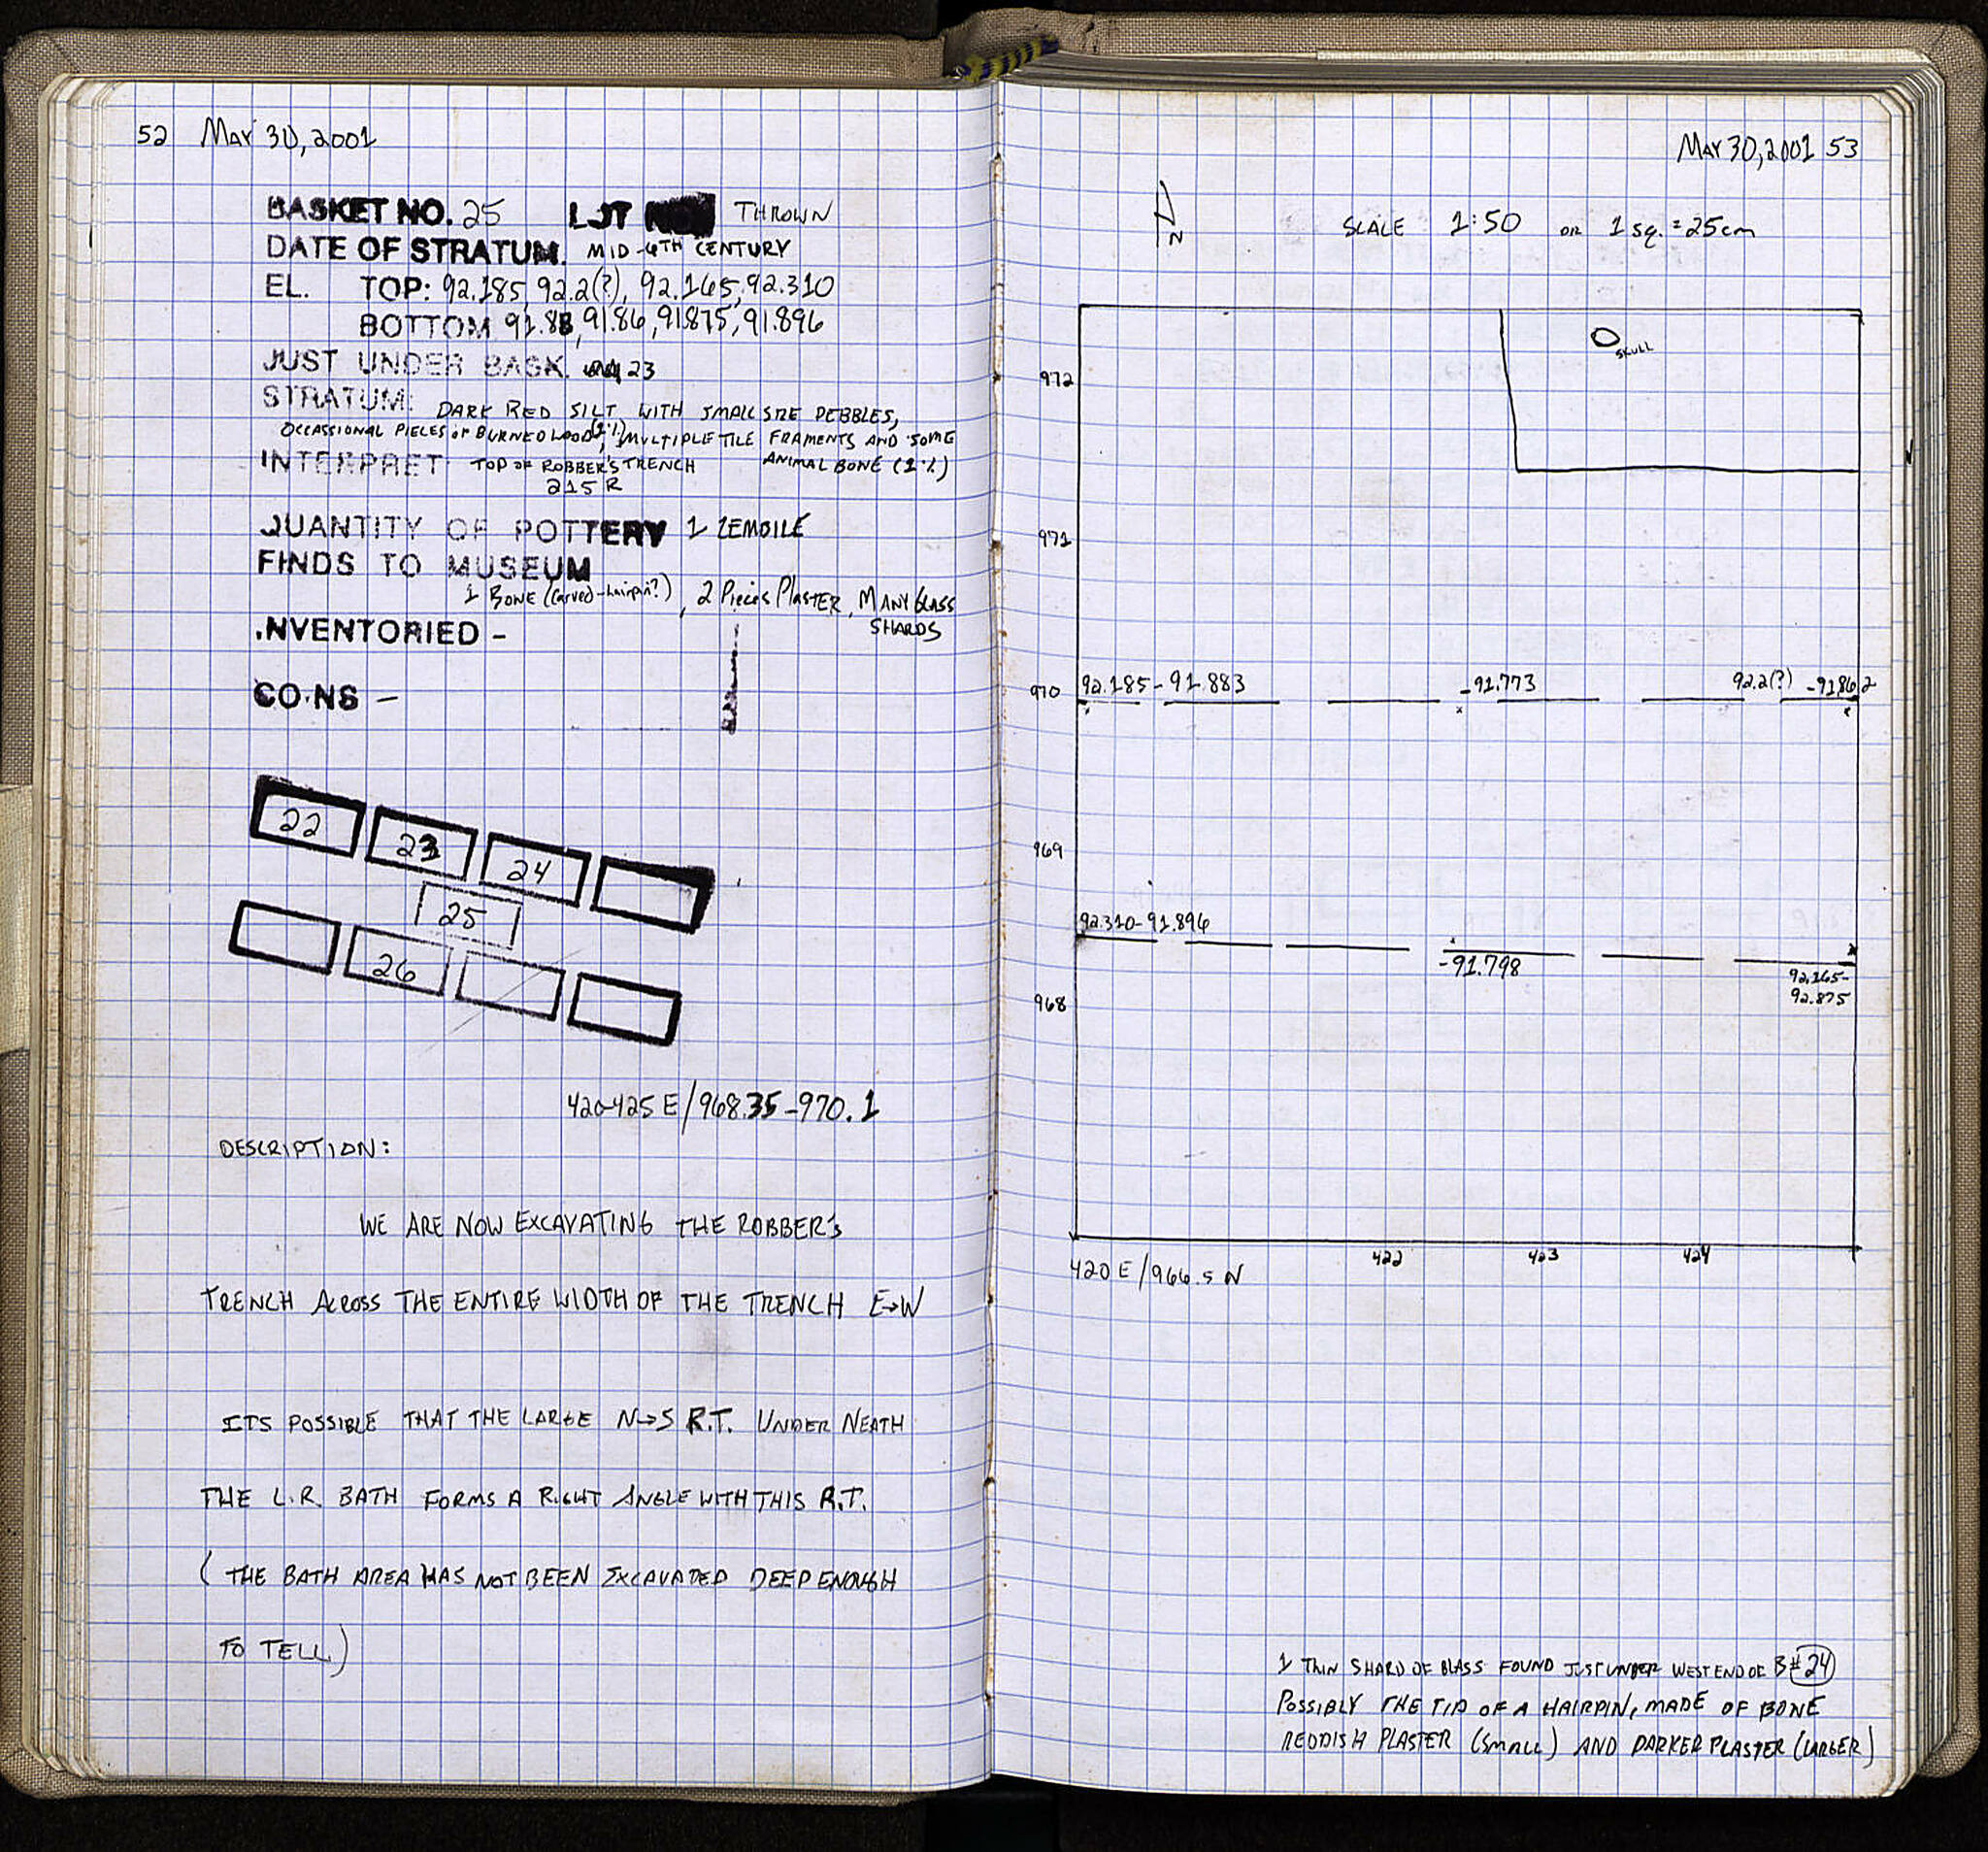 52 MAY 30, 2001
BASKET NO. 25 LOT THROWN
DATE OF STRATUM. MID-4TH CENTURY
EL. TOP: 92.185, 92.2(?), 92.165, 92.310
BOTTOM 91.88, 91.86, 91.875, 91.896
JUST UNDER BASK. 23
STRATUM: DARK RED SILT WITH SMALL SIZE PEBBLES,
OCCASSIONAL PIECES OF BURNED WOOD (1%), MULTIPLE TILE FRAMENTS AND SOME
ANIMAL BONE (1%)
INTERPRET TOP OF ROBBER'S TRENCH
215 R
QUANTITY OF POTTERY 1 ZEMBILE
FINDS TO MUSEUM
1 BONE (carved-hairpin?), 2 Pieces PLASTER, MANY GLASS
SHARDS
INVENTORIED -
COINS -
22
23
24
25
26
420-425 E/968.35-970.1
DESCRIPTION:
WE ARE NOW EXCAVATING THE ROBBER'S
TRENCH ACROSS THE ENTIRE WIDTH OF THE TRENCH E→W
ITS POSSIBLE THAT THE LARGE N→S R.T. UNDER NEATH
THE L.R. BATH FORMS A RIGHT ANGLE WITH THIS R.T.
(THE BATH AREA HAS NOT BEEN EXCAVATED DEEP ENOUGH
TO TELL)
MAY 30, 2001 53
N
SCALE 1:50 OR 1 sq. = 25cm
SKULL
972
971
970 92.185-91.883 -91.773 92.2(?) -91.862
969
92.310-91.896
-91.798
92.165-
92.875
968
422 423 424
420 E/966.5 N
1 THIN SHARD OF GLASS FOUND JUST UNDER WEST END OF B#24
POSSIBLY THE TIP OF A HAIRPIN, MADE OF BONE
REDDISH PLASTER (SMALL) AND DARKER PLASTER (LARGER)